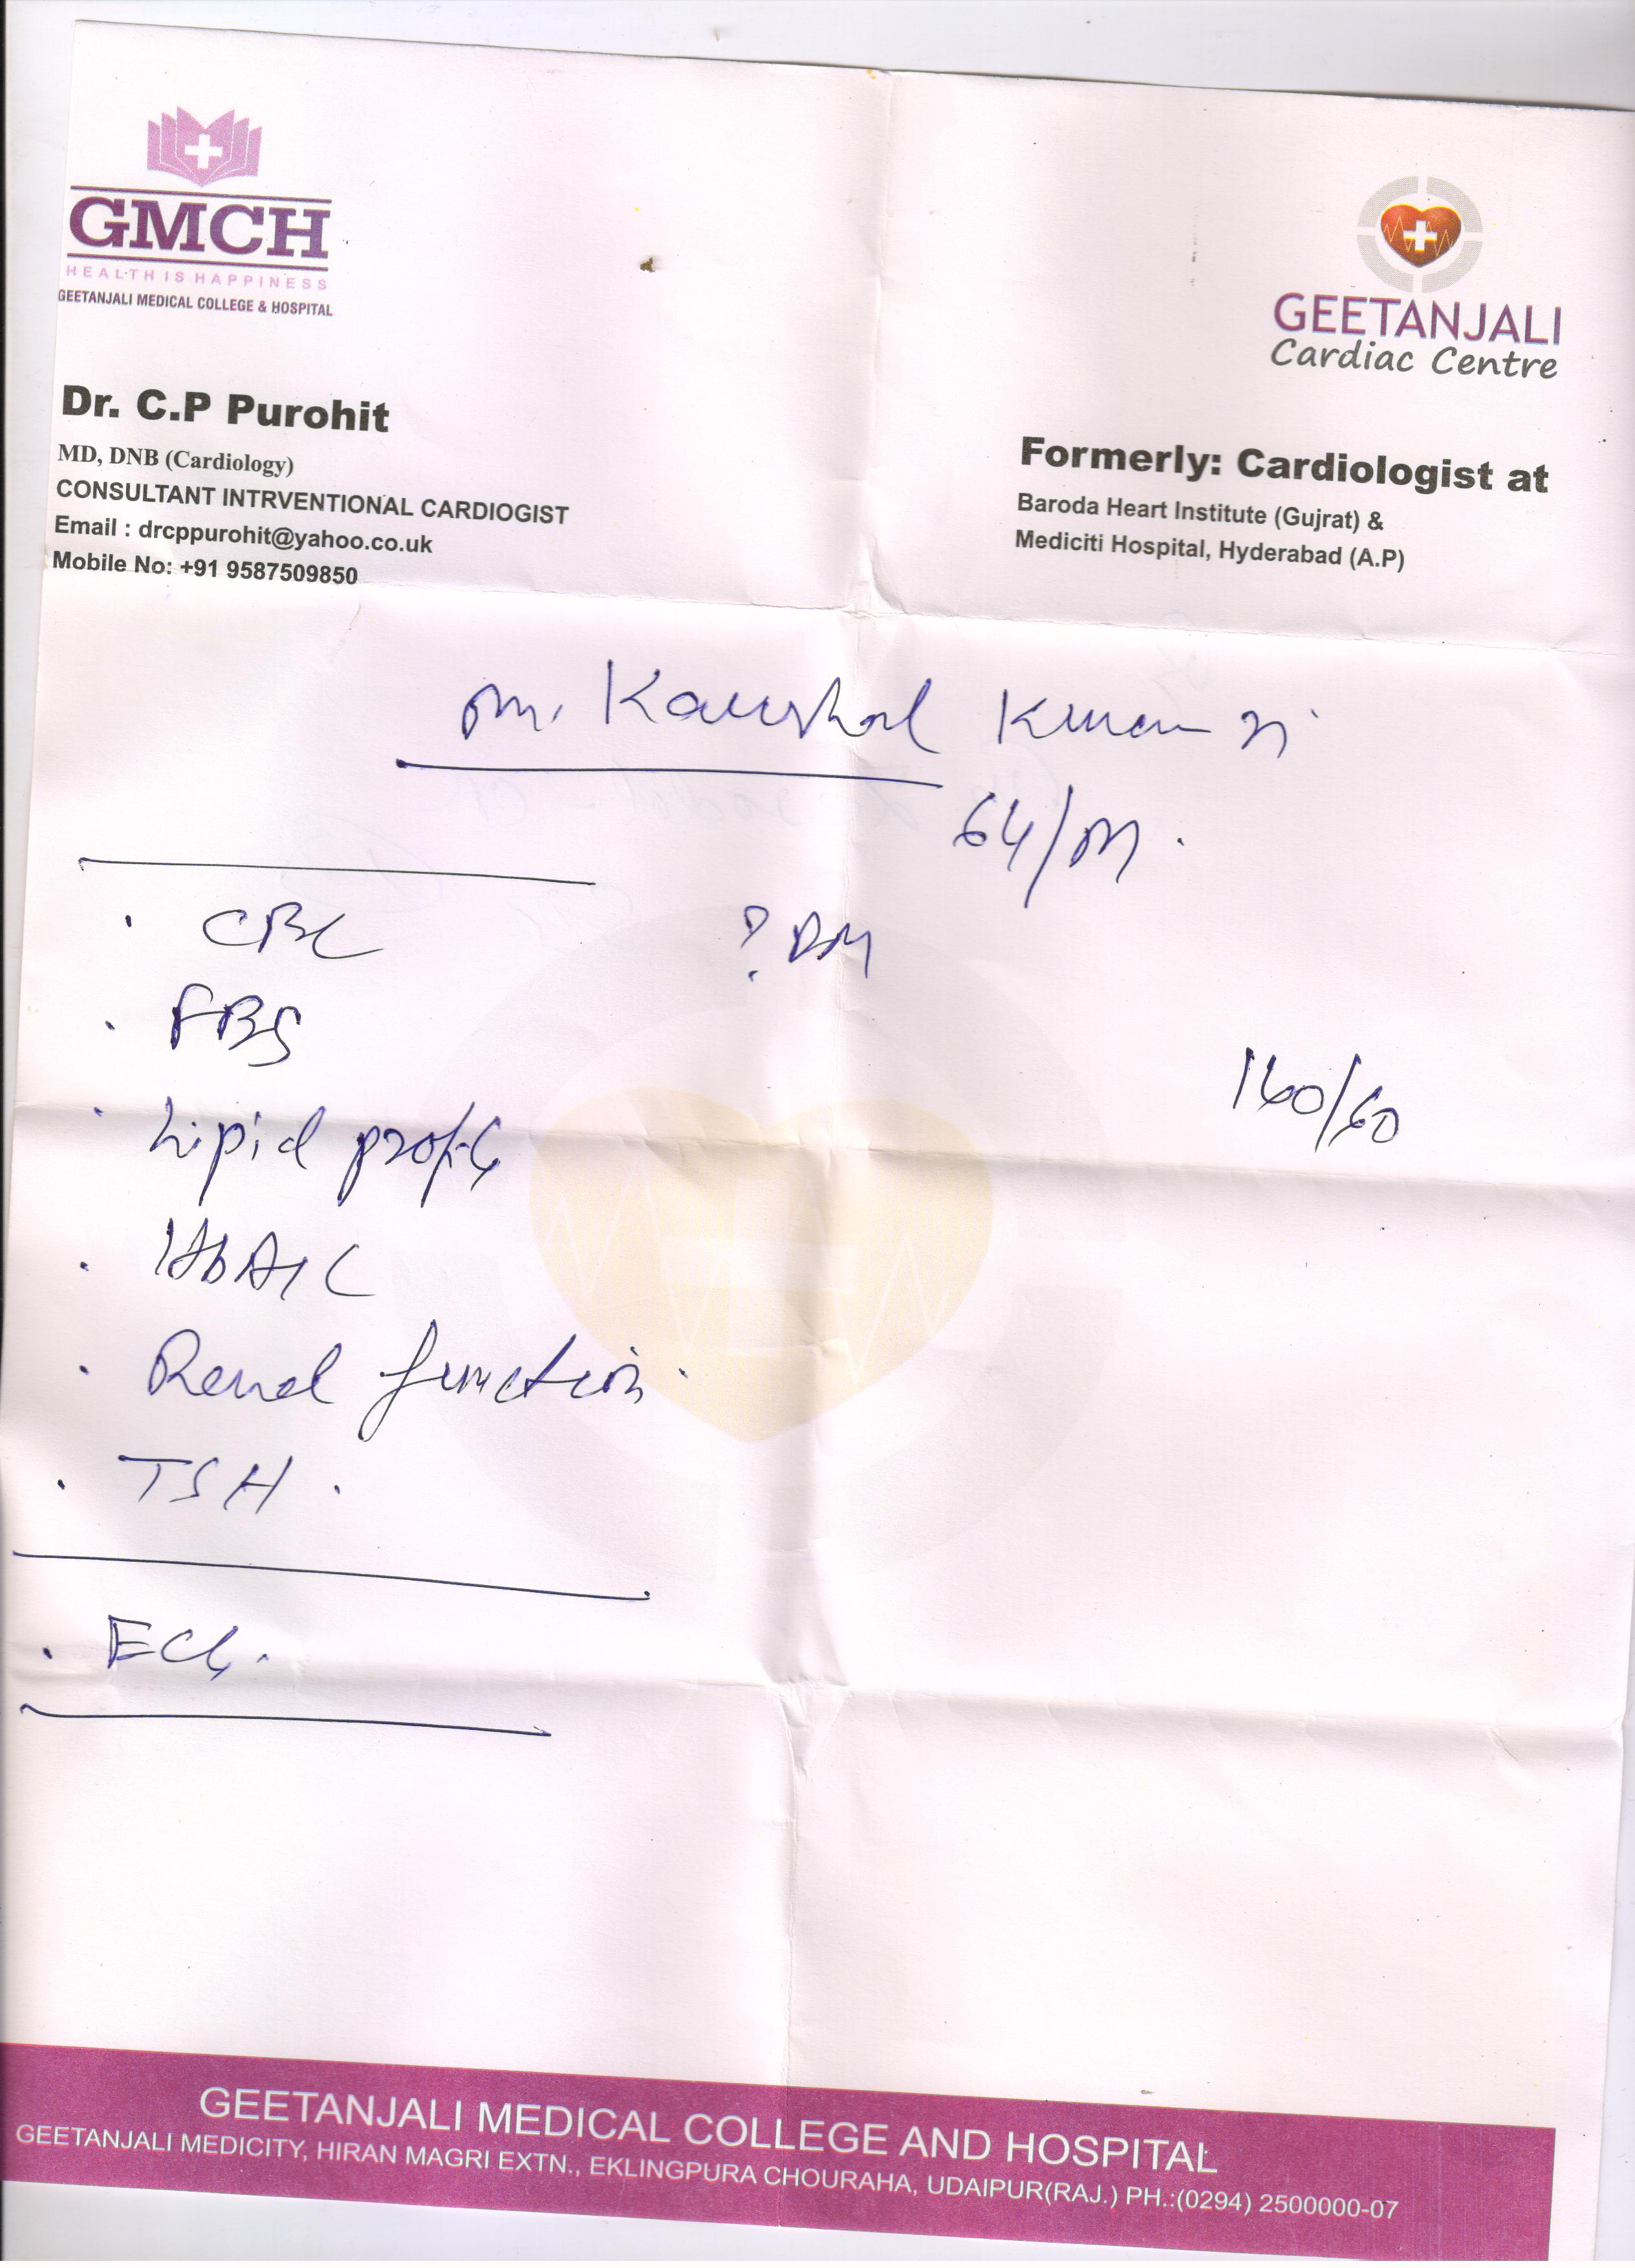 GMCH
HEALTH IS HAPPINESS
GEETANJALI MEDICAL COLLEGE & HOSPITAL
GEETANJALI
Cardiac Centre
Dr. C.P Purohit
MD, DNB (Cardiology)
CONSULTANT INTRVENTIONAL CARDIOGIST
Email : drcppurohit@yahoo.co.uk
Mobile No: +91 9587509850
Formerly: Cardiologist at
Baroda Heart Institute (Gujrat) &
Mediciti Hospital, Hyderabad (A.P)
Mr. Kaushal Kumar Ji
64/M.
. CBC
? DM
. FBS
160/60
. Lipid profile
. HbA1C
. Renal function.
. TSH.
. ECG.
GEETANJALI MEDICAL COLLEGE AND HOSPITAL
GEETANJALI MEDICITY, HIRAN MAGRI EXTN., EKLINGPURA CHOURAHA, UDAIPUR(RAJ.) PH.:(0294) 2500000-07